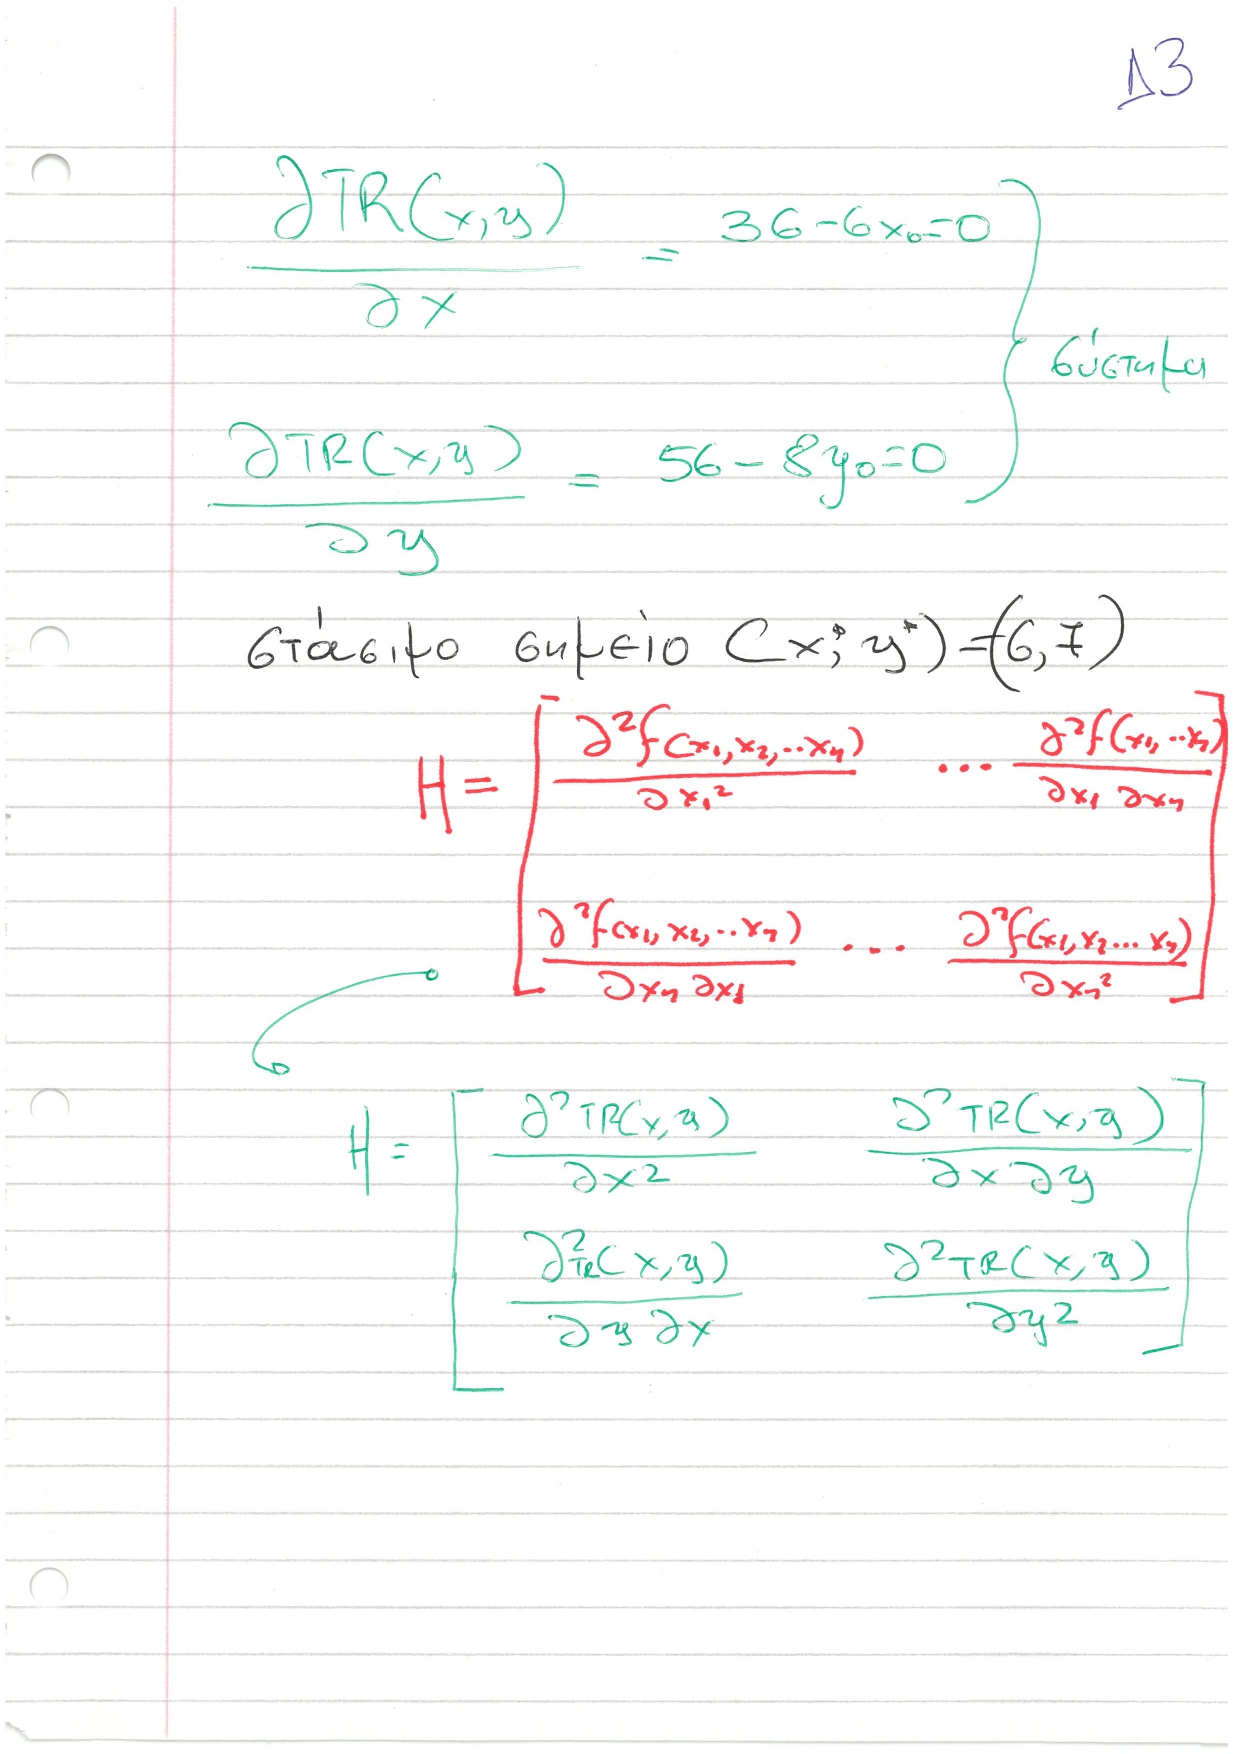 Δ3
∂TR(x,y) / ∂x = 36-6x₀=0
σύστημα
∂TR(x,y) / ∂y = 56-8y₀=0
στάσιμο σημείο (x*, y*)=(6,7)
H = [ ∂²f(x₁,x₂,..xₙ) / ∂x₁² ... ∂²f(x₁,..xₙ) / ∂x₁ ∂xₙ
∂²f(x₁,x₂,..xₙ) / ∂xₙ ∂x₁ ... ∂²f(x₁,x₂...xₙ) / ∂xₙ² ]
H = [ ∂²TR(x,y) / ∂x² ∂²TR(x,y) / ∂x∂y
∂²TR(x,y) / ∂y∂x ∂²TR(x,y) / ∂y² ]